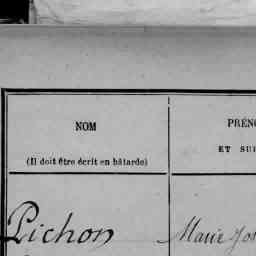 NOM
(Il doit être écrit en bâtarde)
PRÉN
ET SUR
Pichon
Marie